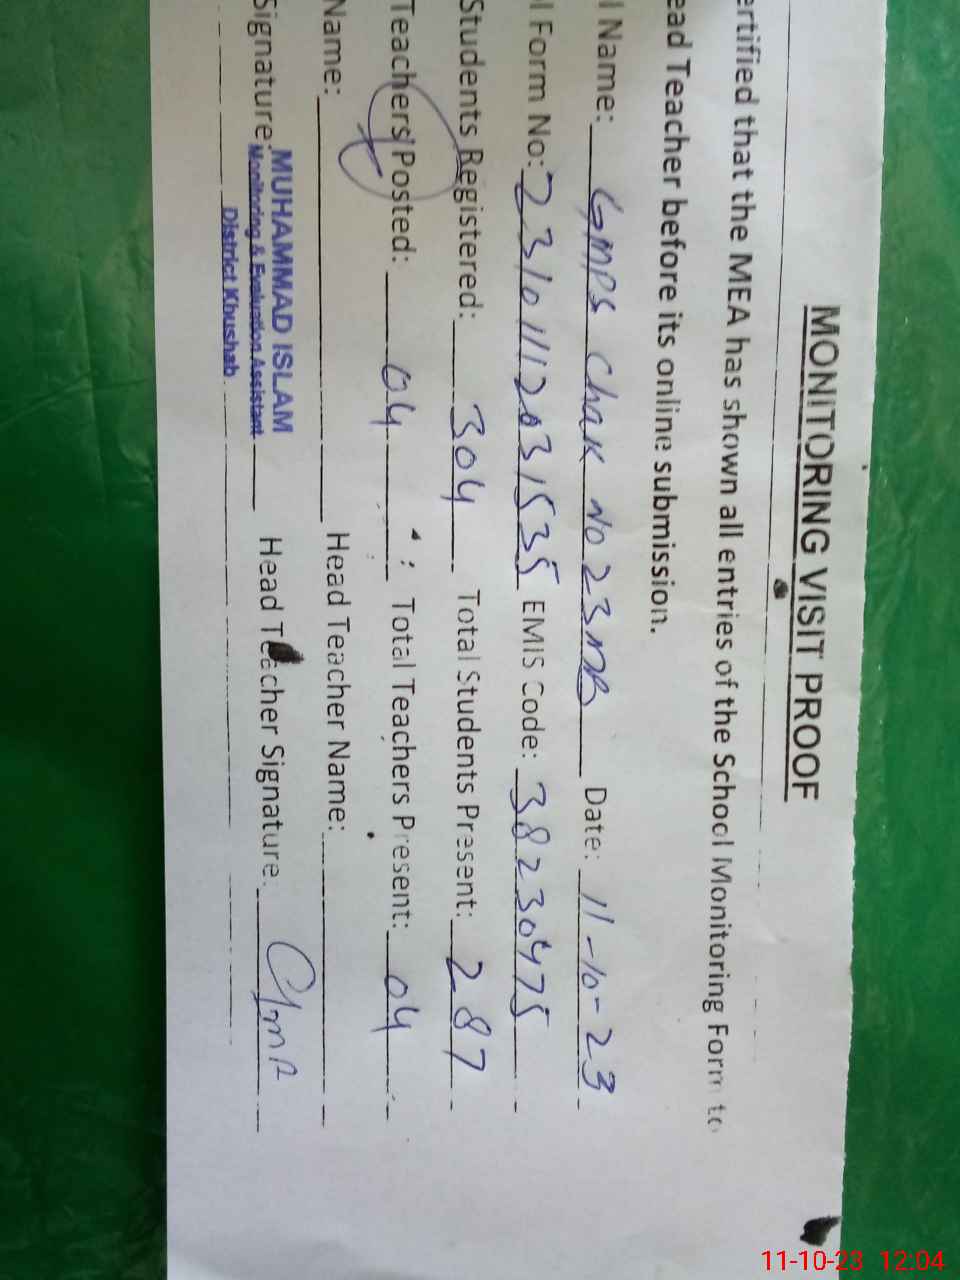 MONITORING VISIT PROOF
ertified that the MEA has shown all entries of the School Monitoring Form to
ead Teacher before its online submission.
l Name: GMPS Chak No 23 MB Date: 11-10-23
l Form No: 23101112031535 EMIS Code: 38230475
Students Registered: 304 Total Students Present: 287
Teachers Posted: 04 : Total Teachers Present: 04
Name: Head Teacher Name:
Signature: MUHAMMAD ISLAM Head Teacher Signature:
Monitoring & Evaluation Assistant
District Khushab
11-10-23 12:04